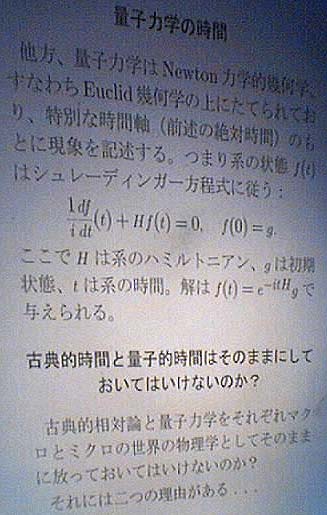 量子力学の時間
他方、量子力学は Newton 力学的幾何学、
すなわち Euclid 幾何学の上にたてられてお
り、特別な時間軸（前述の絶対時間）のも
とに現象を記述する。つまり系の状態 f(t)
はシュレーディンガー方程式に従う：
1/i df/dt(t) + Hf(t) = 0,　f(0) = g.
ここで H は系のハミルトニアン、g は初期
状態、t は系の時間。解は f(t) = e^{-itH}g で
与えられる。
古典的時間と量子的時間はそのままにして
おいてはいけないのか？
古典的相対論と量子力学をそれぞれマク
ロとミクロの世界の物理学としてそのまま
に放っておいてはいけないのか？
それには二つの理由がある...